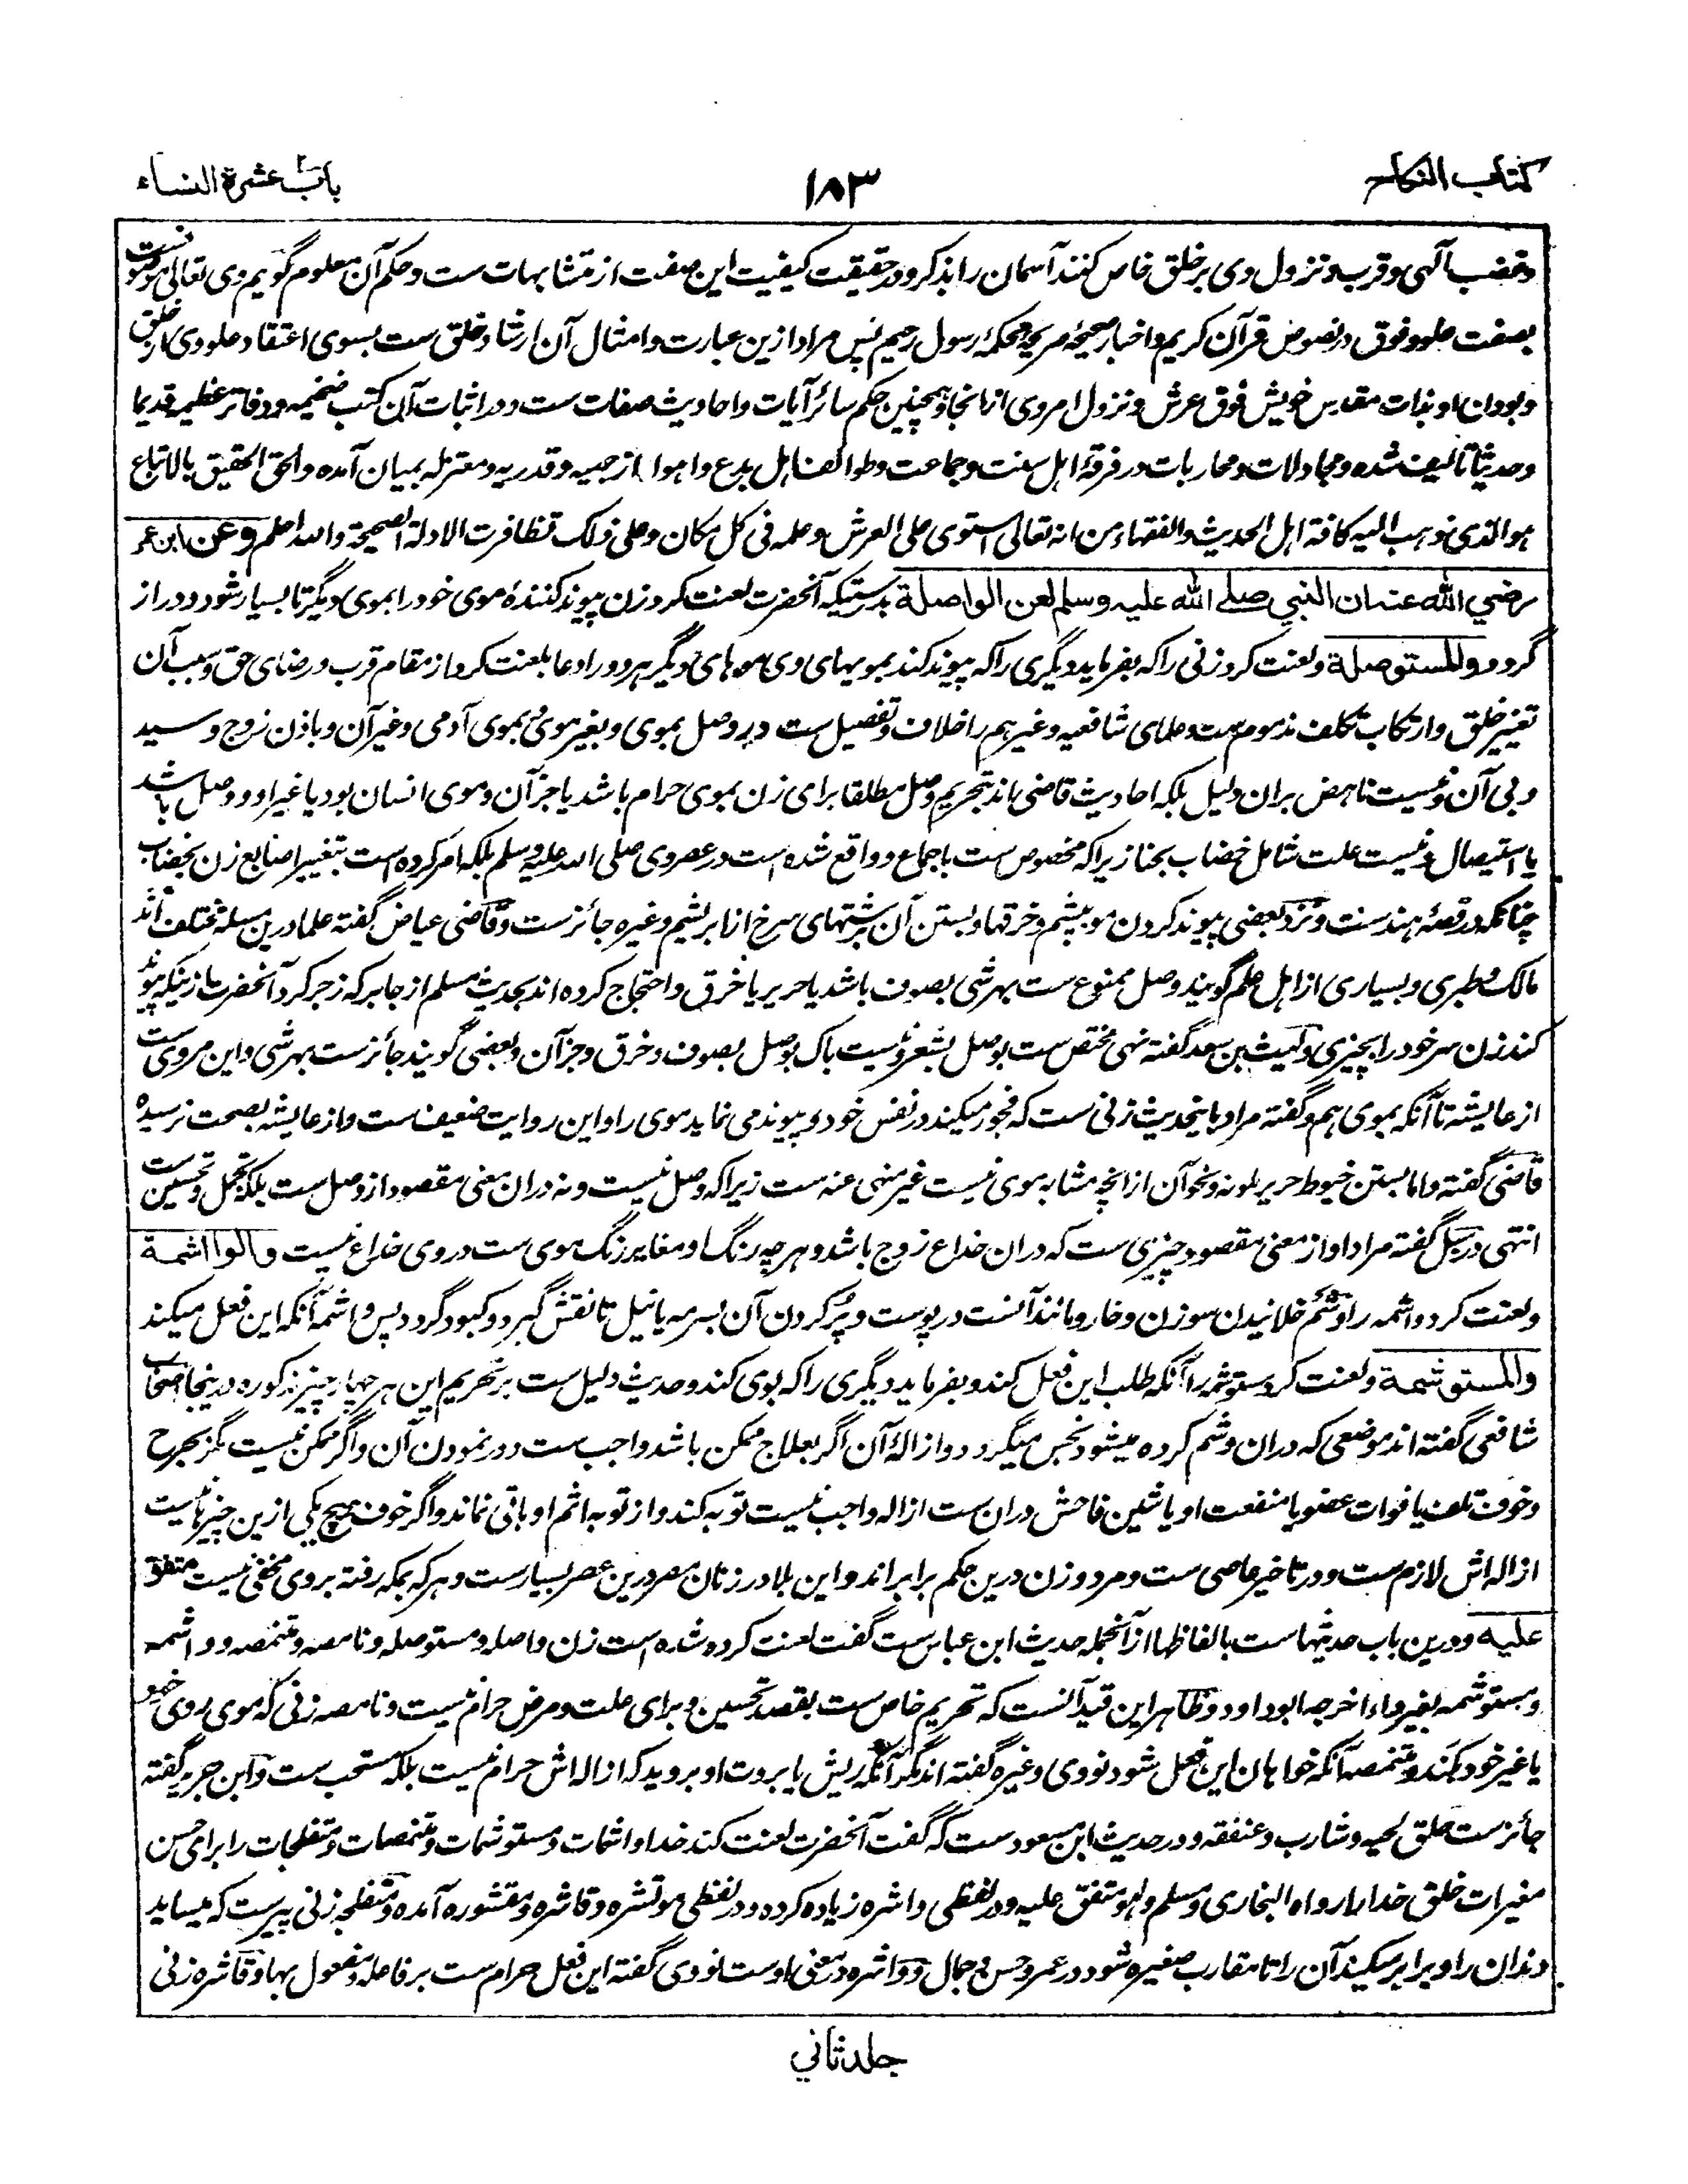 كتاب النكاح
١٨٣
باب عشرة النساء
وغضب الٓهی و قرب و نزول وی بر خلق خاص کنند آسمان را بذکر و در حقیقت کیفیت این صفت از متشابهات ست و حکم آن معلوم گویم وی تعالی موصوفست
بصفت علو و فوق در نصوص قرآن کریم و اخبار صحیحهٔ صریحهٔ محکمهٔ رسول رحیم پس مراد ازین عبارت و امثال آن ارشاد خلق ست بسوی اعتقاد علو وی از خلق
و بودن او بذات مقدس خویش فوق عرش و نزول امر وی از انجا و همچنین حکم سائر آیات و احادیث صفات ست و در اثبات آن کتب ضخیمه و دفاتر عظیمه قدیما
و حدیثا تالیف شده و مجادلات و محاربات در فرقهٔ اهل سنت و جماعت و طوائف اهل بدع و اهوا از جهمیه و قدریه و معتزله بمیان آمده و الحق الحقیق بالاتباع
هو الذی ذهب الیه کافة اهل الحدیث والفقهاء من انه تعالی استوی علی العرش و علمه فی کل مکان و علی ذلک تظافرت الادلة الصحیحة والله اعلم وعن ابن عمر
رضي الله عنه ان النبي صلے الله عليه وسلم لعن الواصلة بدرستیکه آنحضرت لعنت کرد زن پیوند کنندهٔ موی خود را بموی دیگر تا بسیار شود و دراز
گردد والمستوصلة و لعنت کرد زنی را که بفرماید دیگری را که پیوند کند بمویهای وی موهای دیگر هر دو را دعا بلعنت کرد از مقام قرب و رضای حق و سبب آن
تغییر خلق و ارتکاب تکلف مذموم ست و علمای شافعیه و غیرهم را خلاف و تفصیل ست در وصل بموی و بغیر موی و بموی آدمی و غیر آن و باذن زوج و سید
و بی آن و نیست ناهض بران دلیل بلکه احادیث قاضی اند بتحریم وصل مطلقا برای زن بموی حرام باشد یا جز آن و موی انسان بود یا غیر او و وصل باشد
یا استیصال و نیست علت شامل خضاب بحنا زیرا که مخصوص ست باجماع و واقع شده است در عصر وی صلی الله علیه وسلم بلکه امر کرده است بتغییر اصابع زن بخضاب
چنانکه در قصهٔ هند ست و نزد بعضی پیوند کردن مو بپشم و خرقها و بستن آن برشتهای سرخ از ابریشم و غیره جائز ست و قاضی عیاض گفته علما درین مسئله مختلف اند
مالک و طبری و بسیاری از اهل علم گویند وصل ممنوع ست بهر شی بصوف باشد یا حریر یا خرق و احتجاج کرده اند بحدیث مسلم از جابر که زجر کرد آنحضرت ازینکه پیوند
کند زن سر خود را بچیزی و لیث بن سعد گفته نهی مختص ست بوصل بشعر و نیست باک بوصل بصوف و خرق و جز آن و بعضی گویند جائز ست بهر شی و این مروی ست
از عایشه تا آنکه بموی هم و گفته مراد باینحدیث زنی ست که فجور میکند در نفس خود و پیوند می نماید موی را و این روایت ضعیف ست و از عایشه بصحت نرسیده
قاضی گفته و اما بستن خیوط حریر ملونه و نحو آن از انچه مشابه موی نیست غیر منهی عنه ست زیرا که وصل نیست و نه دران معنی مقصود از وصل ست بلکه تجمل و تحسین ست
انتهی در سبل گفته مراد او از معنی مقصود چیزی ست که دران خداع زوج باشد و هر چه رنگ او مغایر رنگ موی ست در وی خداع نیست والواشمة
و لعنت کرد واشمه را و وشم خلانیدن سوزن و خار و مانند آنست در پوست و پر کردن آن بسرمه یا نیل تا نقش گیرد و کبود گردد پس واشمه آنکه این فعل میکند
والمستوشمة و لعنت کرد مستوشمه را آنکه طلب این فعل کند و بفرماید دیگری را که بوی کند و حدیث دلیل ست بر تحریم این هر چهار چیز مذکوره در ینجا اصحاب
شافعی گفته اند موضعی که دران وشم کرده میشود نجس میگردد و ازالهٔ آن اگر بعلاج ممکن باشد واجب ست دور نمودن آن و اگر ممکن نیست مگر بجرح
و خوف تلف یا فوات عضو یا منفعت او یا شین فاحش دران ست ازاله واجب نیست توبه کند و از توبه اثم او باقی نماند و اگر خوف هیچ یکی ازین چیزها نیست
ازاله اش لازم ست و در تاخیر عاصی ست و مرد و زن درین حکم برابر اند و این بلا در زنان مصر درین عصر بسیار ست و هر که بمکه رفته بر وی مخفی نیست متفق
علیه و درین باب حدیثهاست بالفاظها از آنجمله حدیث ابن عباس ست گفت لعنت کرده شده است زن واصله و مستوصله و نامصه و متنمصه و واشمه
و مستوشمه بغیر داء اخرجه ابوداود و ظاهر این قید آنست که تحریم خاص ست بقصد تحسین و برای علت و مرض حرام نیست و نامصه زنی که موی روی خود
یا غیر خود بکند و متنمصه آنکه خواهان این فعل شود نووی و غیره گفته اند مگر آنکه ریش یا بروت او بروید که ازاله اش حرام نیست بلکه مستحب ست و ابن جریر گفته
جائز ست حلق لحیه و شارب و عنفقه و در حدیث ابن مسعود ست که گفت آنحضرت لعنت کند خدا واشمات و مستوشمات و متنمصات و متفلجات را برای حسن
مغیرات خلق خدا را رواه البخاری و مسلم و هو متفق علیه و در لفظی واشره زیاده کرده و در لفظی موتشره و قاشره و مقشوره آمده و متفلجه زنی پیر ست که میساید
دندان را و برابر میکند آن را تا مقارب صغیره شود در عمر و حسن و جمال و واشره در معنی اوست نووی گفته این فعل حرام ست بر فاعله و مفعول بها و قاشره زنی
جلد ثاني